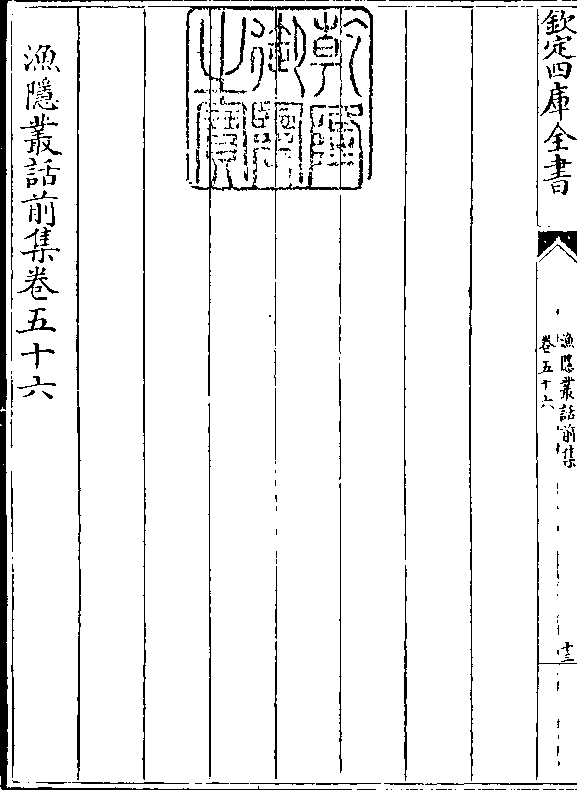 欽定四庫全書
漁隱叢話前集
卷五十六
十三
乾隆
御覽
之寶
漁隱叢話前集卷五十六